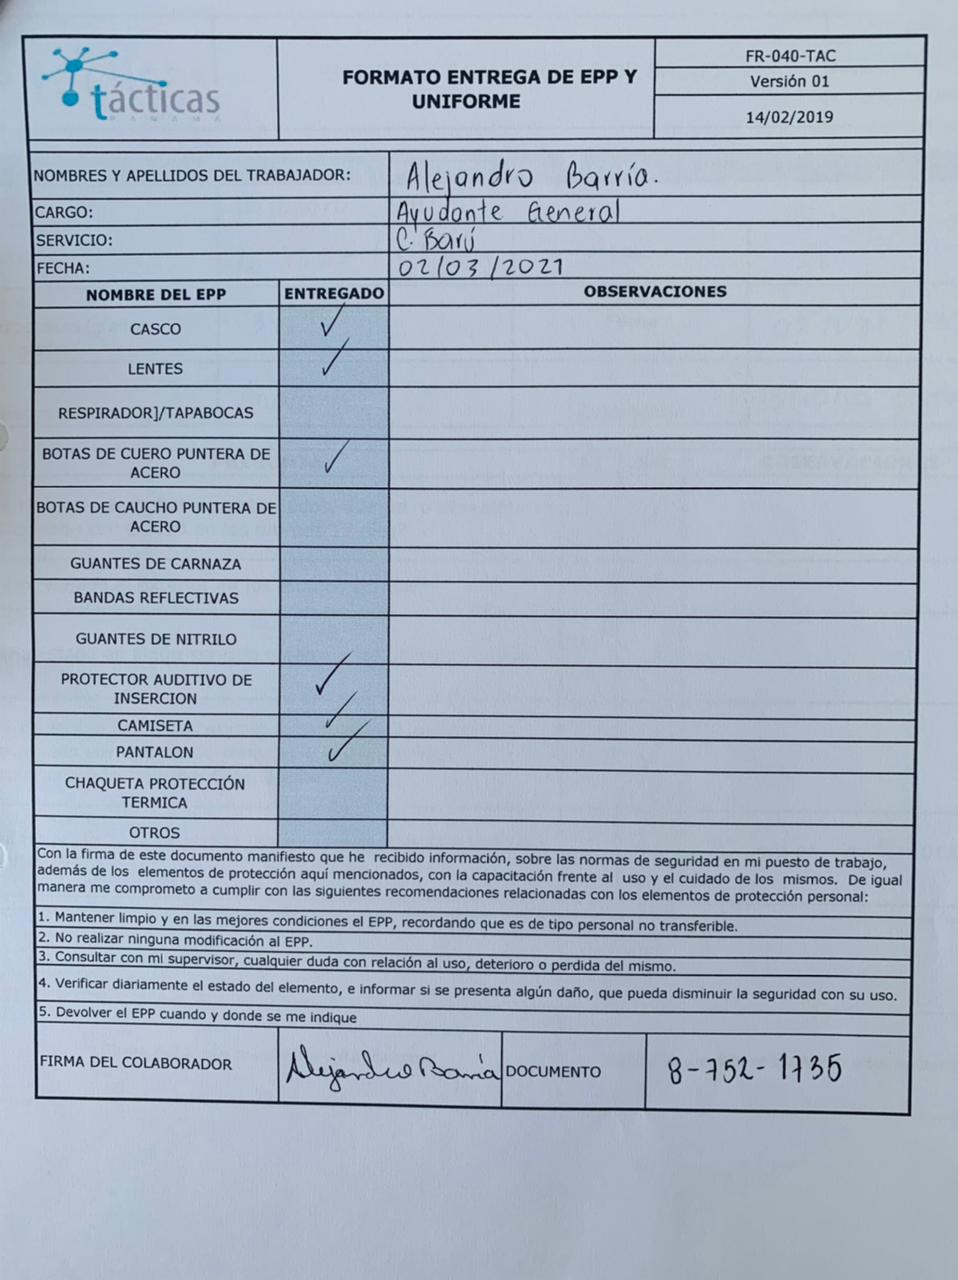 tácticas
PANAMÁ
FORMATO ENTREGA DE EPP Y
UNIFORME
FR-040-TAC
Versión 01
14/02/2019
NOMBRES Y APELLIDOS DEL TRABAJADOR: Alejandro Barría.
CARGO: Ayudante General
SERVICIO: C. Barú
FECHA: 02/03/2021
NOMBRE DEL EPP ENTREGADO OBSERVACIONES
CASCO ✓
LENTES ✓
RESPIRADOR]/TAPABOCAS
BOTAS DE CUERO PUNTERA DE
ACERO ✓
BOTAS DE CAUCHO PUNTERA DE
ACERO
GUANTES DE CARNAZA
BANDAS REFLECTIVAS
GUANTES DE NITRILO
PROTECTOR AUDITIVO DE
INSERCION ✓
CAMISETA ✓
PANTALON ✓
CHAQUETA PROTECCIÓN
TERMICA
OTROS
Con la firma de este documento manifiesto que he recibido información, sobre las normas de seguridad en mi puesto de trabajo,
además de los elementos de protección aquí mencionados, con la capacitación frente al uso y el cuidado de los mismos. De igual
manera me comprometo a cumplir con las siguientes recomendaciones relacionadas con los elementos de protección personal:
1. Mantener limpio y en las mejores condiciones el EPP, recordando que es de tipo personal no transferible.
2. No realizar ninguna modificación al EPP.
3. Consultar con mi supervisor, cualquier duda con relación al uso, deterioro o perdida del mismo.
4. Verificar diariamente el estado del elemento, e informar si se presenta algún daño, que pueda disminuir la seguridad con su uso.
5. Devolver el EPP cuando y donde se me indique
FIRMA DEL COLABORADOR Alejandro Barría DOCUMENTO 8-752-1735